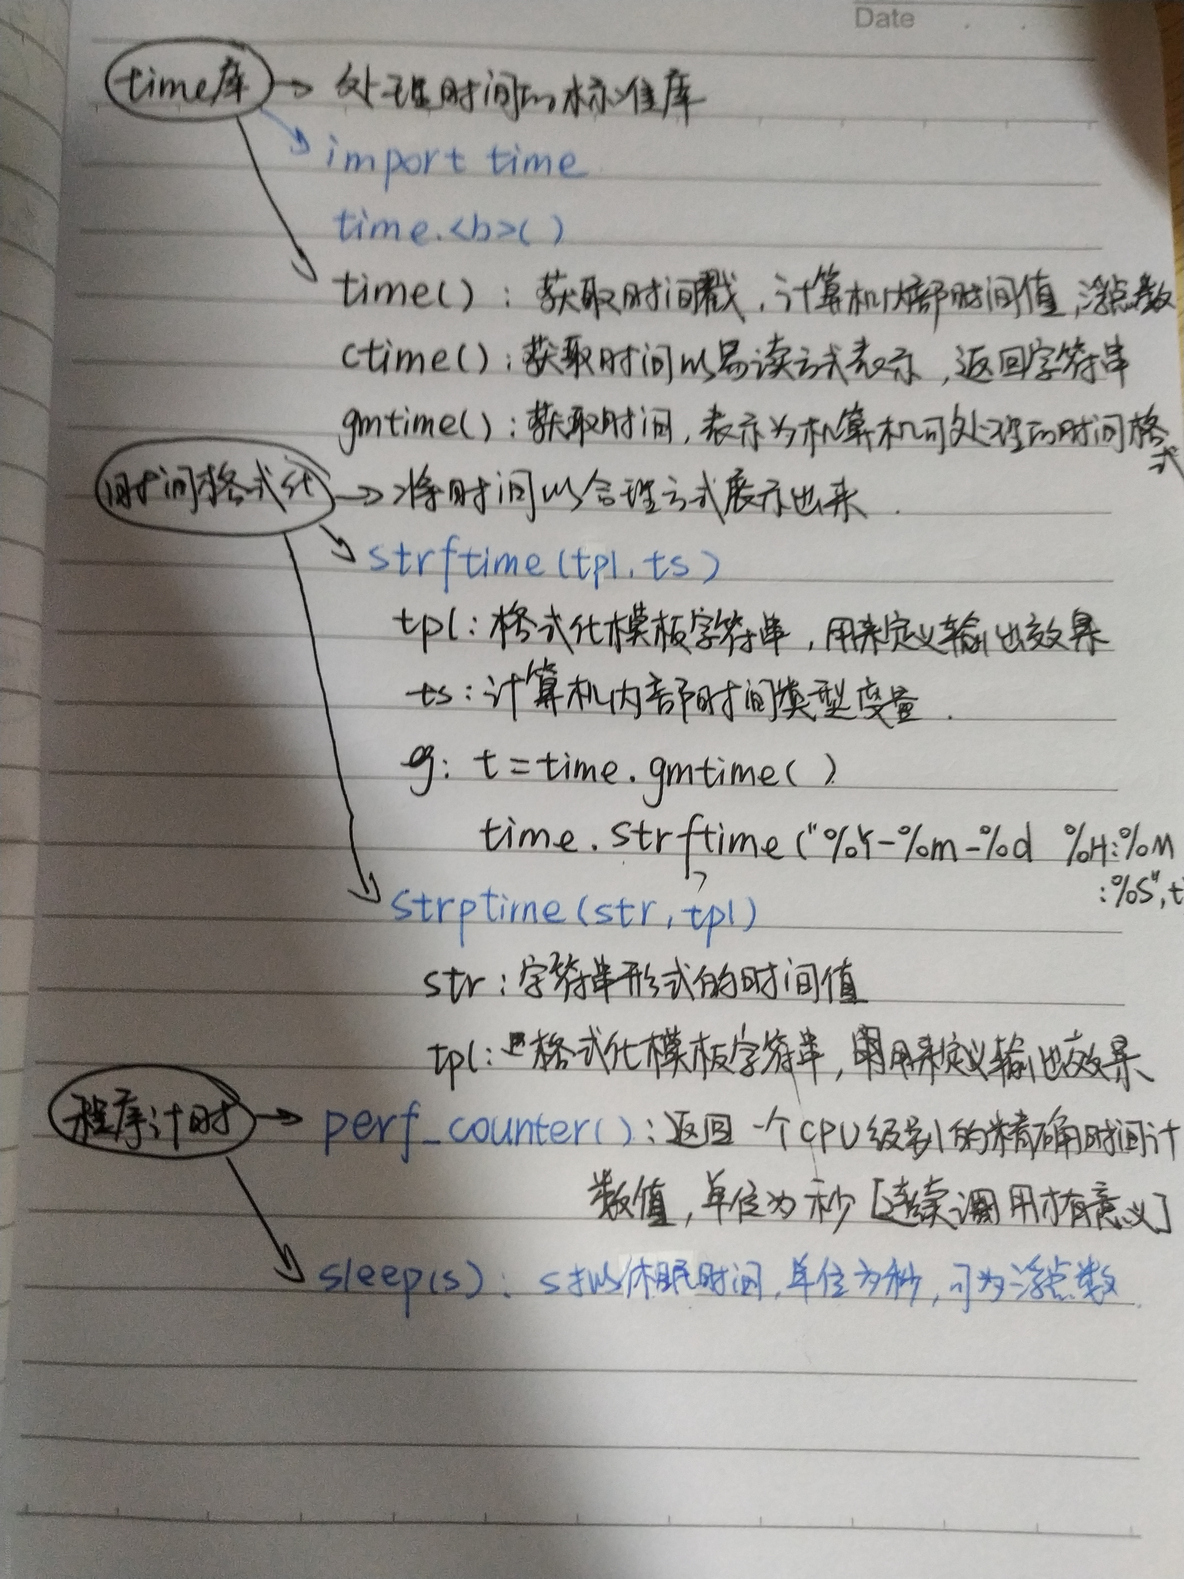 Date
time库 → 处理时间的标准库
import time
time.<b>()
time()：获取时间戳，计算机内部时间值，浮点数
ctime()：获取时间以易读方式表示，返回字符串
gmtime()：获取时间，表示为机算机可处理的时间格式
时间格式化 → 将时间以合理方式展示出来.
strftime(tpl,ts)
tpl：格式化模板字符串，用来定义输出效果
ts：计算机内部时间类型变量.
eg: t=time.gmtime()
time.strftime("%Y-%m-%d %H:%M
:%S",t
strptime(str,tpl)
str：字符串形式的时间值
tpl：格式化模板字符串，用来定义输出效果
程序计时 → perf_counter()：返回一个CPU级别的精确时间计
数值，单位为秒[连续调用才有意义]
sleep(s)：s拟休眠时间，单位为秒，可为浮点数.